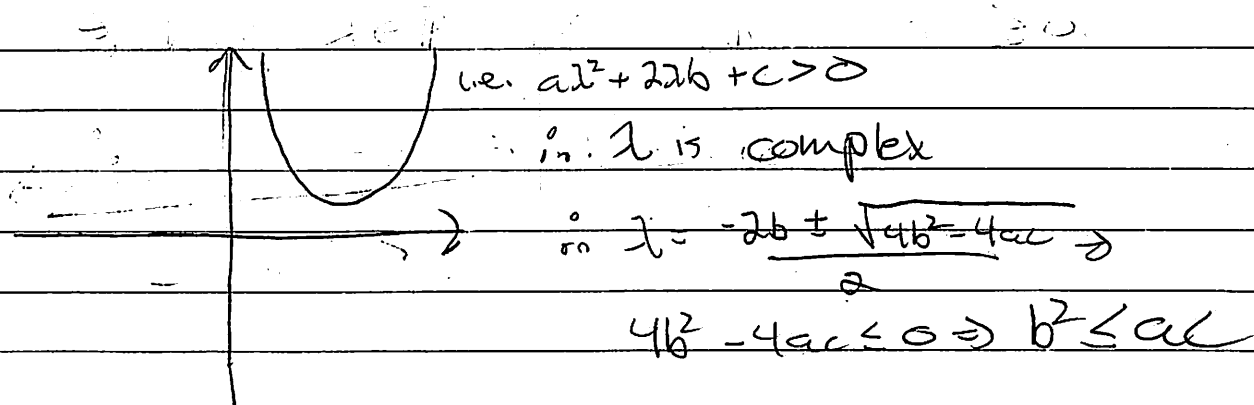 i.e. aλ² + 2λb + c > 0
∴ λ is complex
∴ λ = (-2b ± √(4b² - 4ac)) / 2 ⇒
4b² - 4ac ≤ 0 ⇒ b² ≤ ac